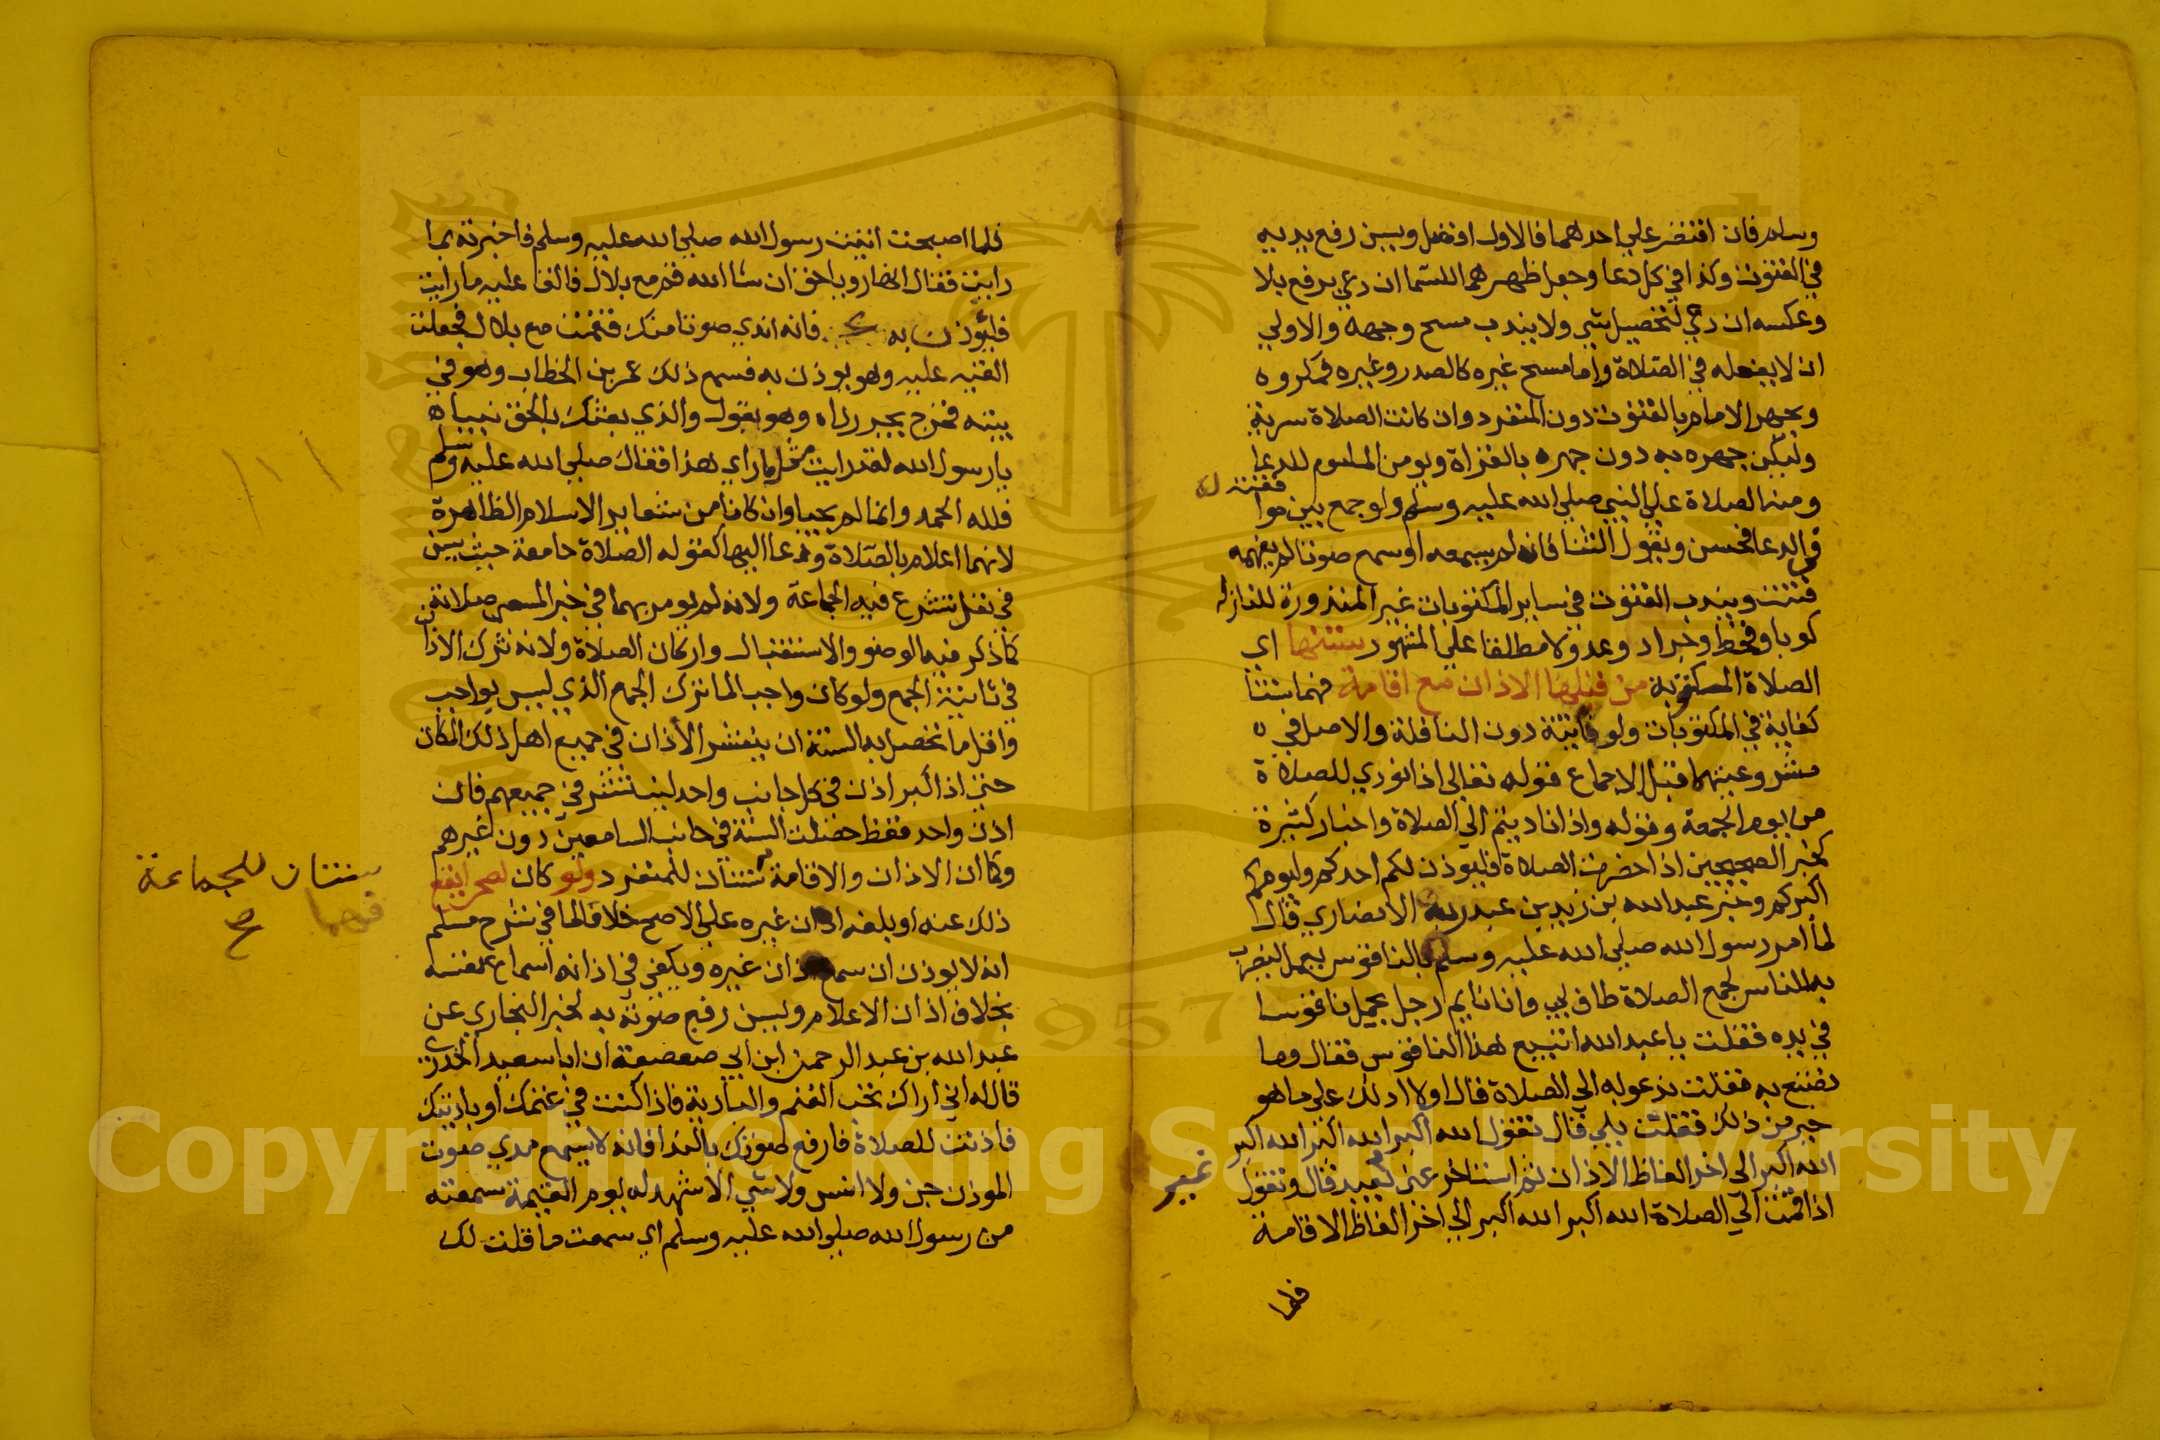 وسلم فان اقتصر علي احدهما فالاول افضل ويسن رفع يديه
في القنوت وكذا في كل دعا وجعل ظهرهما للسما ان دعي برفع بلا
وعكسه ان دعي لتحصيل شي ولا يندب مسح وجهه والاولي
ان لا يفعله في الصلاة واما مسح غيره كالصدر وغيره فمكروه
ويجهر الامام بالقنوت دون المنفرد وان كانت الصلاة سرية
وليكن جهره به دون جهره بالقراة ويومن الماموم للدعا
ومنه الصلاة علي النبي صلي الله عليه وسلم ولو جمع بين موا
فقته له
في الدعا فحسن ويقول الثنا فان لم يسمعه او سمع صوتا لم يفهمه
قنت ويندب القنوت في ساير المكتوبات غير المنذورة للنازله
كوبا وقحط وجراد وعدو لا مطلقا علي المشهور سنتها اي
الصلاة المكتوبة من قبلها الاذان مع اقامة فهما سنتا
كفاية في المكتوبات ولو فايتة دون النافلة والاصل في
مشروعيتهما قبل الاجماع قوله تعالي اذا نودي للصلاة
من يوم الجمعة وقوله واذا ناديتم الي الصلاة واخبار كثيرة
كخبر الصحيحين اذا حضرت الصلاة فليوذن لكم احدكم وليومكم
اكبركم وخبر عبد الله بن زيد بن عبد ربه الانصاري قال
لما امر رسول الله صلي الله عليه وسلم بالناقوس يعمل ليضرب
به للناس لجمع الصلاة طاف بي وانا نايم رجل يحمل ناقوسا
في يده فقلت يا عبد الله اتبيع هذا الناقوس فقال وما
تصنع به فقلت ندعو به الي الصلاة قال اولا ادلك علي ما هو
خير من ذلك فقلت بلي قال تقول الله اكبر الله اكبر الله اكبر
الله اكبر الي اخر الفاظ الاذان ثم استاخر عني غير بعيد قال وتقول
اذا قمت الي الصلاة الله اكبر الله اكبر الي اخر الفاظ الاقامة
فلما
فلما اصبحت اتيت رسول الله صلي الله عليه وسلم فاخبرته بما
رايت فقال انها رويا حق ان شا الله قم مع بلال فالق عليه ما رايت
فليؤذن به فانه اندي صوتا منك فقمت مع بلال فجعلت
القيه عليه وهو يوذن به فسمع ذلك عمر بن الخطاب وهو في
بيته فخرج يجر رداه وهو يقول والذي بعثك بالحق نبيا
يا رسول الله لقد رايت مثل ما راي هذا فقال صلي الله عليه وسلم
فلله الحمد وانما لم يجبا وان كانا من شعاير الاسلام الظاهرة
لانهما اعلام بالصلاة ودعا اليها كقوله الصلاة جامعة حيث يسن
في نفل تشرع فيه الجماعة ولانه لم يومر بهما في خبر المسي صلاته
كما ذكر فيه الوضو والاستقبال واركان الصلاة ولانه ترك الاذان
في ثانية الجمع ولو كان واجبا لما ترك الجمع الذي ليس بواجب
واقل ما تحصل به السنة ان ينتشر الاذان في جميع اهل ذلك المكان
حتي اذا كبر اذن في كل جانب واحد لينتشر في جميعهم فان
اذن واحد فقط حصلت السنة في جانب السامعين دون غيرهم
وكما ان الاذان والاقامة سنتان للمنفرد ولو كان لصحرا يقع
سنتان للجماعة
فهما
صح
ذلك عنه او بلغه اذان غيره علي الاصح خلافا لما في شرح مسلم
انه لا يوذن ان سمع اذان غيره ويكفي في اذانه اسماع نفسه
بخلاف اذان الاعلام ويسن رفع صوته به لخبر البخاري عن
عبد الله بن عبد الرحمن ابن ابي صعصعة ان ابا سعيد الخدري
قال له اني اراك تحب الغنم والبادية فاذا كنت في غنمك او باديتك
فاذنت للصلاة فارفع صوتك بالندا فانه لا يسمع مدي صوت
الموذن جن ولا انس ولا شي الا شهد له يوم القيمة سمعته
من رسول الله صلي الله عليه وسلم اي سمعت ما قلت لك
1957
Copyright © King Saud University